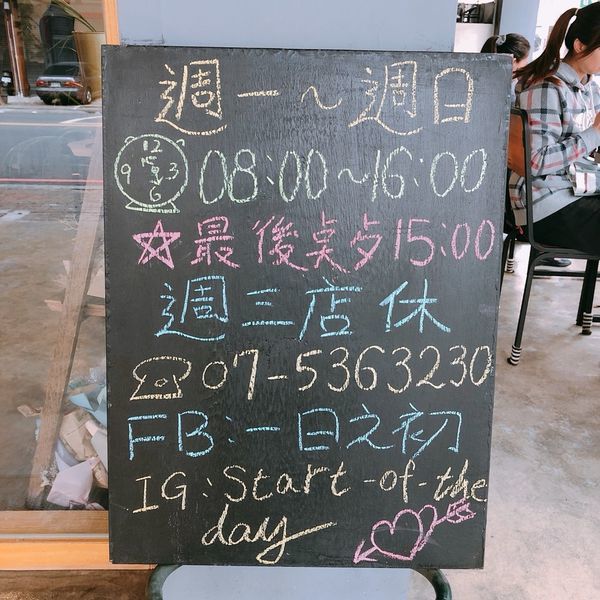 週一~週日
12 9 3 6 08:00~16:00
☆最後桌夕15:00
週三店休
☎07-5363230
FB:一日之初
IG:Start-of-the
day